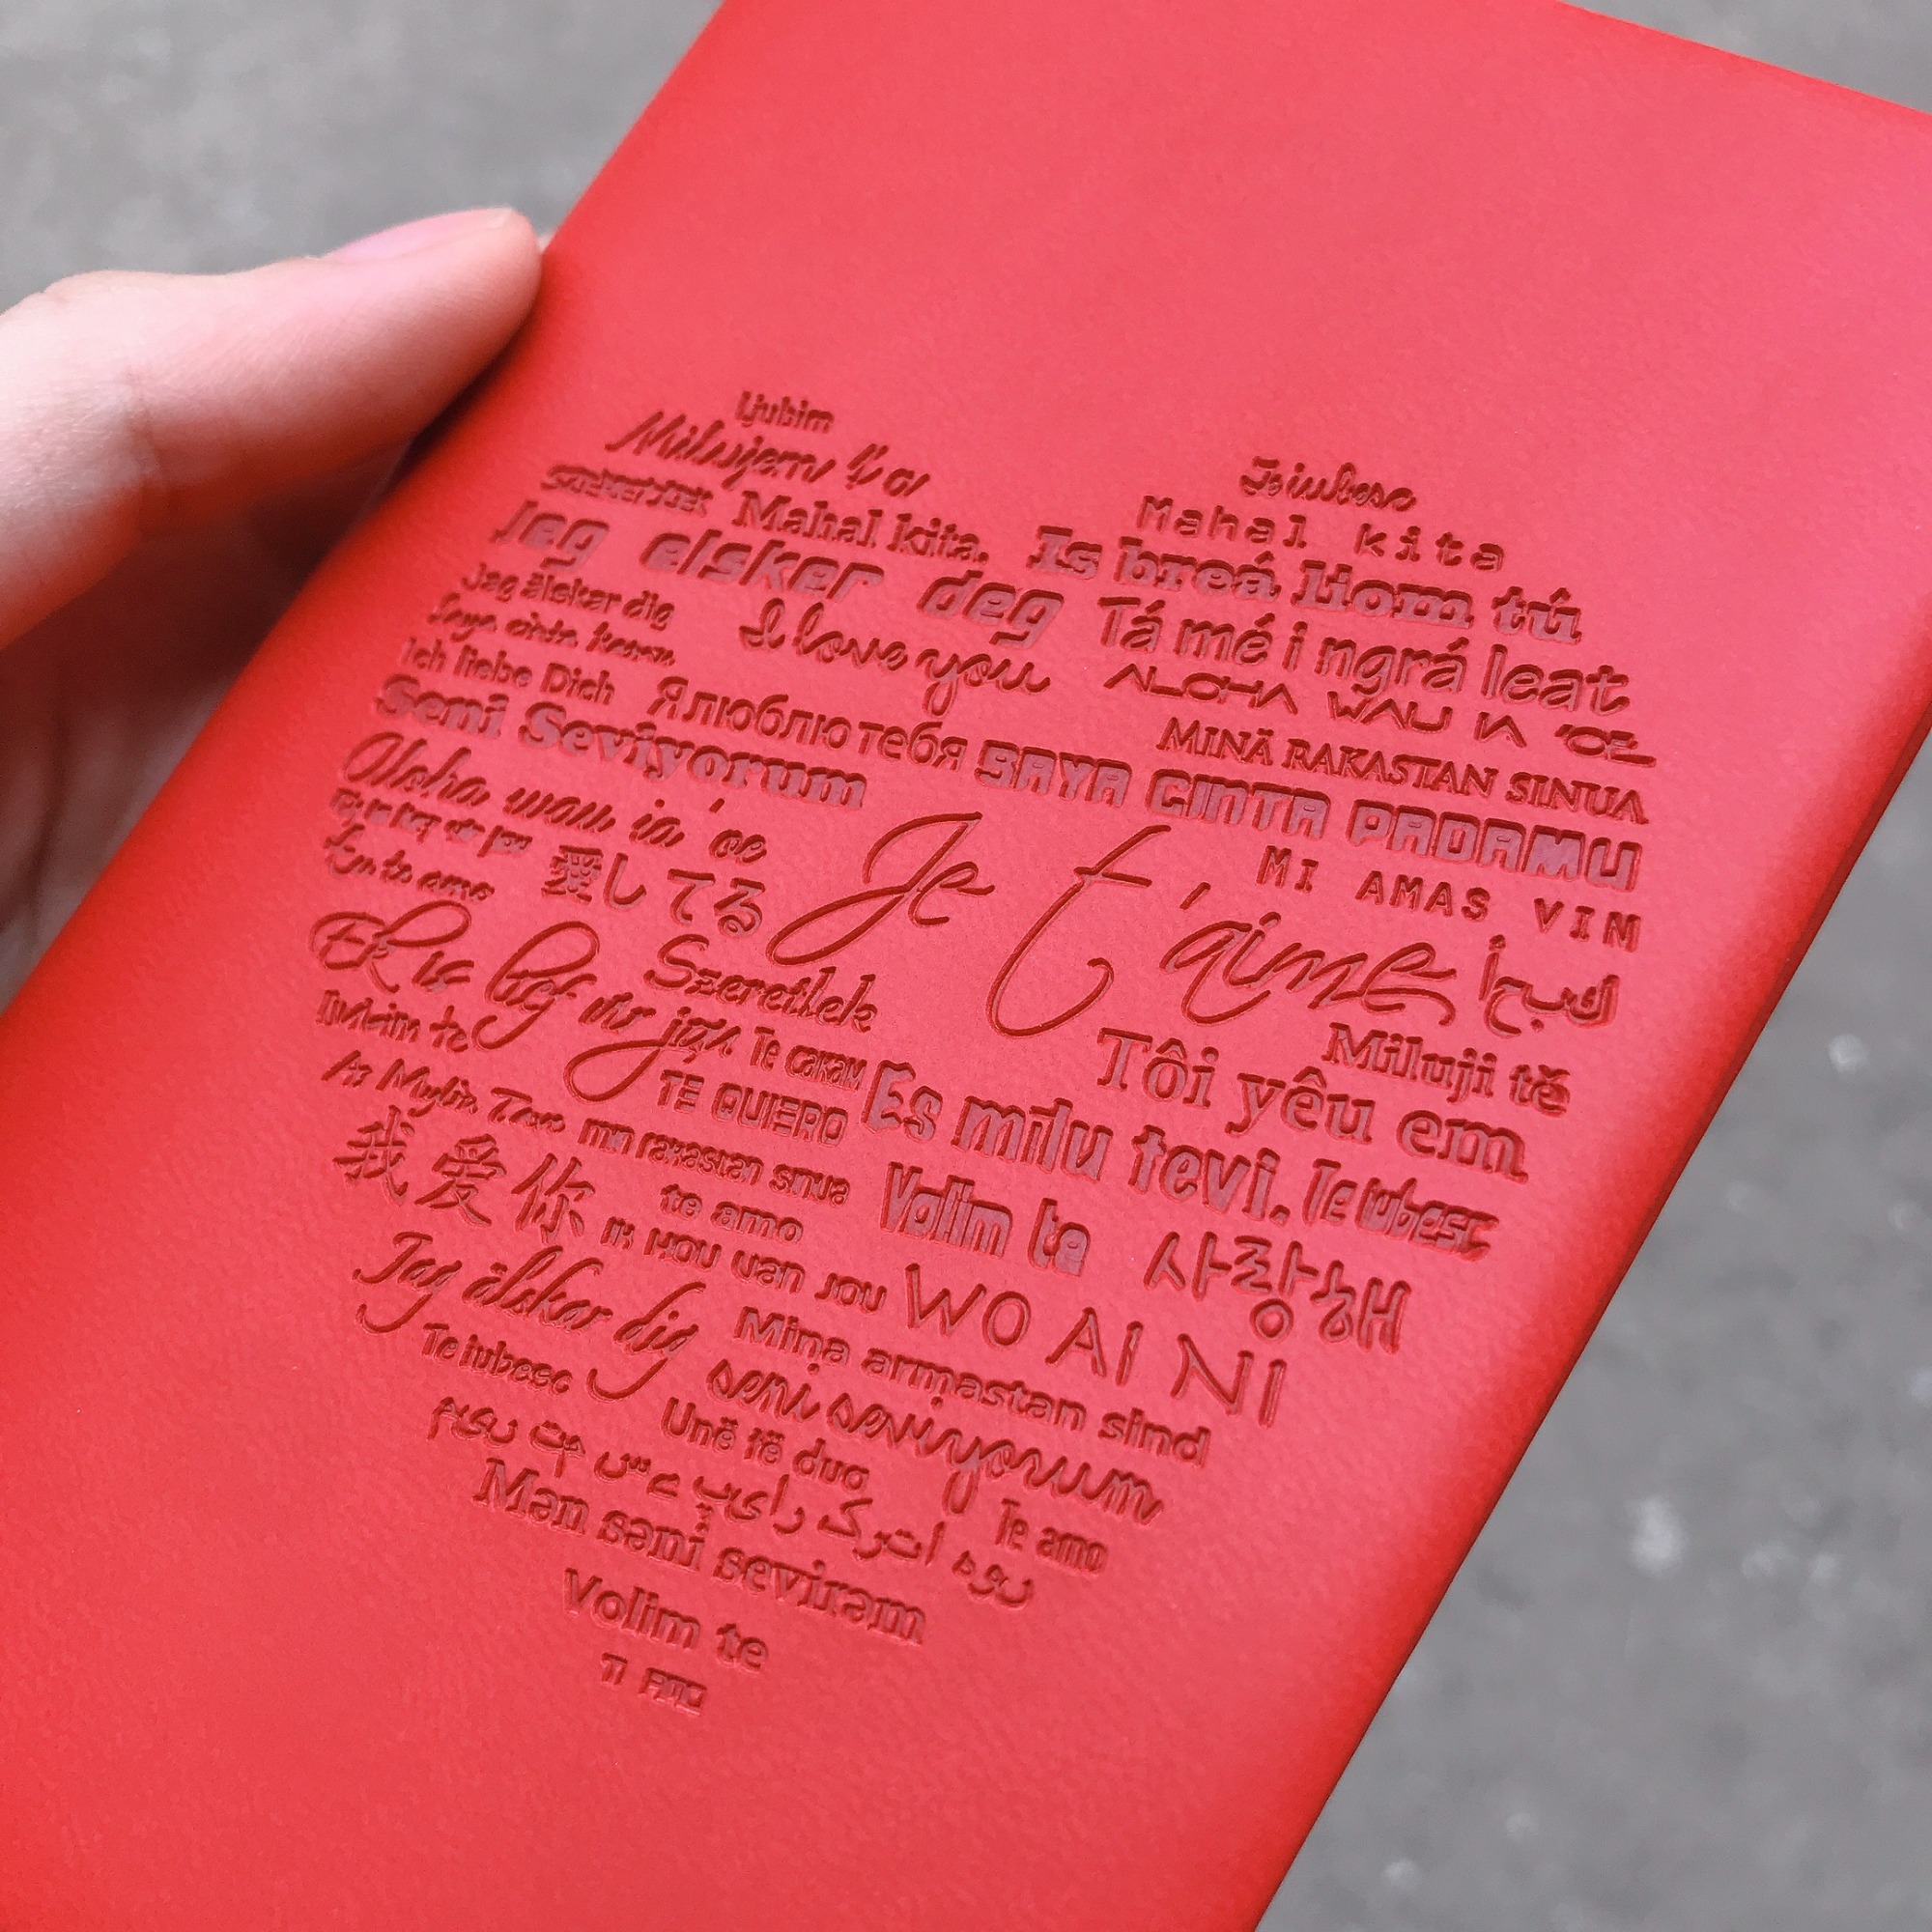 Ljubim
Milujem ťa
Te iubesc
Mahal kita.
Mahal kita
Jeg elsker deg
Is breá liom tú
Jag älskar dig
I love you
Tá mé i ngrá leat
Saya cinta kamu
ALOHA WAU IA 'OE
Ich liebe Dich
Я люблю тебя
MINÄ RAKASTAN SINUA
Seni Seviyorum
SAYA CINTA PADAMU
Aloha wau ia 'oe
Je t'aime
MI AMAS VIN
te amo
愛してる
أحبك
Ek is lief vir jou
Szeretlek
Miluji tě
ljubim te
Tôi yêu em
TE QUIERO
Es mīlu tevi.
Te iubesc
我爱你
te amo
Volim te
사랑해
IK HOU VAN JOU
WO AI NI
Jag älskar dig
Mina armastan sind
Te iubesc
seni seviyorum
Unë të dua
Te amo
Mən səni sevirəm
Volim te